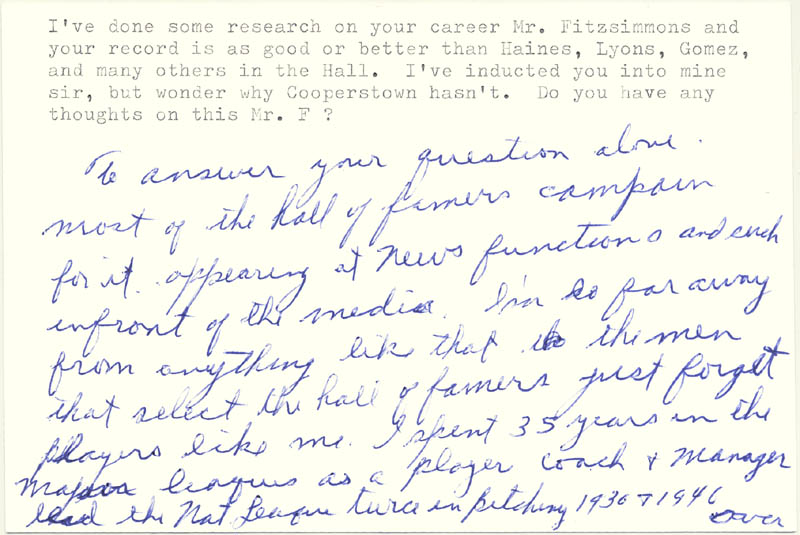 I've done some research on your career Mr. Fitzsimmons and
your record is as good or better than Haines, Lyons, Gomez,
and many others in the Hall. I've inducted you into mine
sir, but wonder why Cooperstown hasn't. Do you have any
thoughts on this Mr. F ?
To answer your question alone.
most of the hall of famers campain
for it. appearing at news functions and such
infront of the media. I'm so far away
from anything like that the men
that select the hall of famers just forget
players like me. I spent 35 years in the
major leagues as a player coach & manager
lead the Nat League twice in pitching 1930 & 1940
over